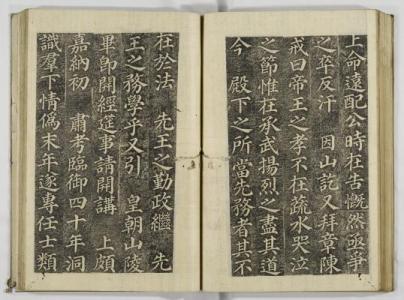 上命遠配公時在告慨然亟爭
之卒反汗　因山訖又拜章陳
戒曰帝王之孝不在蔬水哭泣
之節惟在承武揚烈之盡其道
今　殿下之所當先務者其不
在於法　先王之勤政繼　先
王之務學乎又引　皇朝山陵
畢卽開經筵事請開講　上頗
嘉納初　肅考臨御四十年洞
識羣下情僞末年遂專任士類